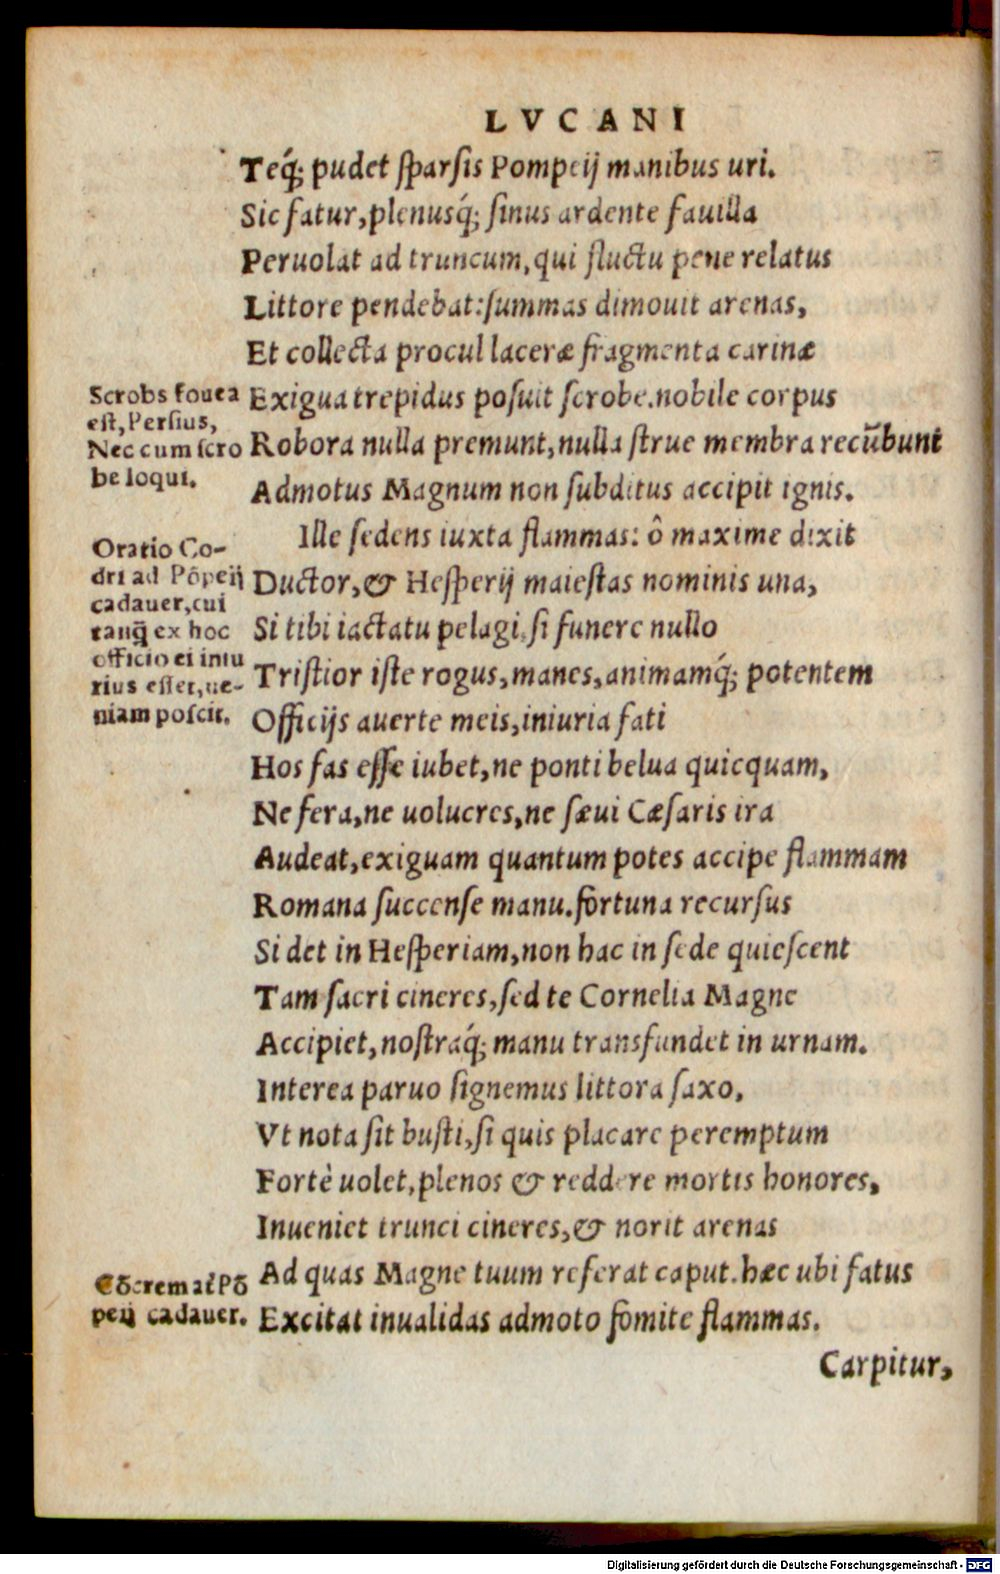 LVCANI
Teq́; pudet sparsis Pompeij manibus uri.
Sic fatur, plenusq́; sinus ardente fauilla
Peruolat ad truncum, qui fluctu pene relatus
Littore pendebat: summas dimouit arenas,
Et collecta procul laceræ fragmenta carinæ
Exigua trepidus posuit scrobe. nobile corpus
Robora nulla premunt, nulla strue membra recũbunt
Admotus Magnum non subditus accipit ignis.
Ille sedens iuxta flammas: ô maxime dixit
Ductor, & Hesperij maiestas nominis una,
Si tibi iactatu pelagi, si funere nullo
Tristior iste rogus, manes, animamq́; potentem
Officijs auerte meis, iniuria fati
Hos fas esse iubet, ne ponti belua quicquam,
Ne fera, ne uolucres, ne sæui Cæsaris ira
Audeat, exiguam quantum potes accipe flammam
Romana succense manu. fortuna recursus
Si det in Hesperiam, non hac in sede quiescent
Tam sacri cineres, sed te Cornelia Magne
Accipiet, nostraq́; manu transfundet in urnam.
Interea paruo signemus littora saxo,
Vt nota sit busti, si quis placare peremptum
Fortè uolet, plenos & reddere mortis honores,
Inueniet trunci cineres, & norit arenas
Ad quas Magne tuum referat caput. hæc ubi fatus
Excitat inualidas admoto fomite flammas.
Carpitur,
Scrobs fouea
est, Persius,
Nec cum scro
be loqui.
Oratio Co-
dri ad Põpeij
cadauer, cui
tanq̃ ex hoc
officio ei iniu
rius esset, ue-
niam poscit.
Cõcremat Põ
peij cadauer.
Digitalisierung gefördert durch die Deutsche Forschungsgemeinschaft - DFG